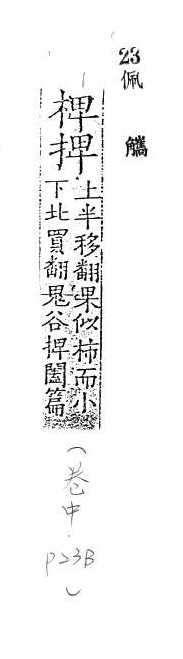 23
佩觿
椑捭
上半移翻果似柿而小
下北買翻鬼谷捭闔篇
(卷中.P23B)